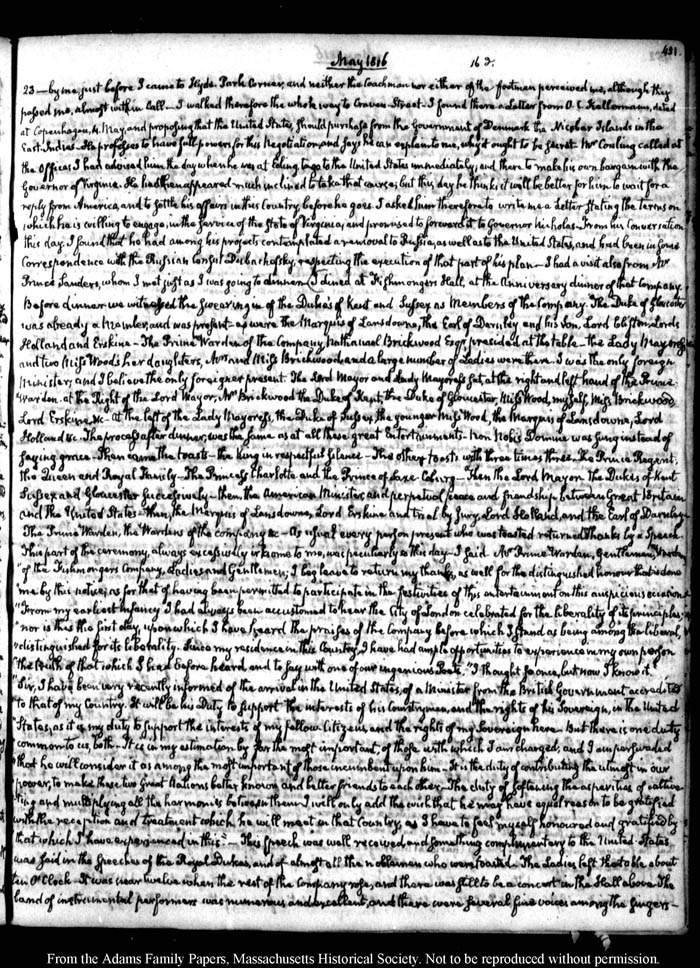 491.
May 1816
16 3.
23 — by me just before I came to Hyde Park Corner, and neither the Coachman nor either of the footmen perceived me, although they
passed me, almost within call — I walked therefore the whole way to Craven-Street. I found there a Letter from O. C. Kellermann, dated
at Copenhagen, 4. May, and proposing that the United States, should purchase from the Government of Denmark the Nicobar Islands in the
East-Indies. He professes to have full powers for this Negotiation, and says he can explain to me, why it ought to be secret. Mr Couling called at
the Office; I had advised him the day when he was at Ealing to go to the United States immediately, and there to make his own bargain with the
Governor of Virginia. He had then appeared much inclined to take that course; but this day he thinks it will be better for him to wait for a
reply from America, and to settle his affairs in this Country, before he goes. I asked him therefore to write me a Letter stating the terms on
which he is willing to engage, in the Service of the State of Virginia, and promised to forward it to Governor Nicholas. From his Conversation
this day I found that he had among his projects contemplated a removal to Russia, as well as to the United States, and had been in some
Correspondence with the Russian Consul Dubachefsky, respecting the execution of that part of his plan — I had a visit also from Mr
Prince Sanders, whom I met just as I was going to dinner. I dined at Fishmongers Hall, at the Anniversary dinner of that Company.
Before dinner we witnessed the swearing in of the Dukes of Kent and Sussex as Members of the Company. The Duke of Glocester
was already a Member, and was present — as were the Marquis of Lansdowne, the Earl of Darnley and his Son, Lord Clifton, Lords
Holland and Erskine — The Prime Warden of the Company Nathanael Brickwood Esqr presided at the table — the Lady Mayoress
and two Miss Woods her daughters, Mrs and Miss Brickwood, and a large number of Ladies were there. I was the only foreign
Minister, and I believe the only foreigner present. The Lord Mayor and Lady Mayoress sat, at the right and left hand of the Prime
Warden. at the Right of the Lord Mayor, Mrs Brickwood the Duke of Kent, the Duke of Gloucester, Miss Wood, myself, Miss Brickwood
Lord Erskine, &c — at the left of the Lady Mayoress, the Duke of Sussex, the younger Miss Wood, the Marquis of Lansdowne, Lord
Holland &c. The process after dinner, was the same as at all these great Entertainments. Non Nobis Domine was sung instead of
saying grace — Then came the toasts — the King in respectful silence — The other toasts with three times three. The Prince Regent.
the Queen and Royal Family — The Princess Charlotte and the Prince of Saxe-Coburg — Then the Lord Mayor. The Dukes of Kent
Sussex and Gloucester successively — then, the American Minister, and perpetual peace and friendship between Great Britain
and the United States — Then, the Marquis of Lansdowne, Lord Erskine and trial by Jury, Lord Holland, and the Earl of Darnley
The Prime Warden, the Wardens of the company &c — As usual every person present who was toasted returned thanks by a Speech.
This part of the ceremony, always excessively irksome to me, was peculiarly so this day — I said. Mr Prime Warden, Gentlemen, Wardens
"of the Fishmongers Company, Ladies and Gentlemen; I beg leave to return my thanks, as well for the distinguished honour that is done
me by this notice, as for that of having been permitted to participate in the festivities of this entertainment on this auspicious occasion
"From my earliest Infancy I had always been accustomed to hear the City of London celebrated for the liberality of its principles;
"nor is this the first day, upon which I have heard the praises of the Company before which I stand as being among the liberal,
"distinguished for its liberality. Since my residence in this Country, I have had ample opportunities to experience in my own person
the truth of that which I had before heard and to say with one of our ingenious Poets, "I thought so once, but now I know it.
"Sir, I have been very recently informed of the arrival in the United States, of a Minister from the British Government accredited
to that of my Country. It will be his Duty to support the interests of his Countrymen, and the rights of his Sovereign, in the United
States, as it is my duty to support the interests of my fellow Citizens, and the rights of my Sovereign here. But there is one duty
common to us, both — It is in my estimation by far the most important, of those with which I am charged, and I am persuaded
that he will consider it as among the most important of those incumbent upon him — It is the duty of contributing the utmost in our
power, to make these two Great Nations better known and better friends to each other — The duty of softening the asperities of cultiva-
ting and multiplying all the harmonies between them. I will only add the wish that he may have equal reason to be gratified
with the reception and treatment which he will meet in that Country; as I have to feel myself honoured and gratified by
that which I have experienced in this." — This Speech was well received, and something complimentary to the United States
was said in the Speeches of the Royal Dukes, and of almost all the noblemen who were toasted. The Ladies left the table about
ten O'Clock — It was near twelve when the rest of the Company rose, and there was still to be a concert in the Hall above. The
band of instrumental performers was numerous and excellent, and there were several fine voices among the singers —
From the Adams Family Papers, Massachusetts Historical Society. Not to be reproduced without permission.